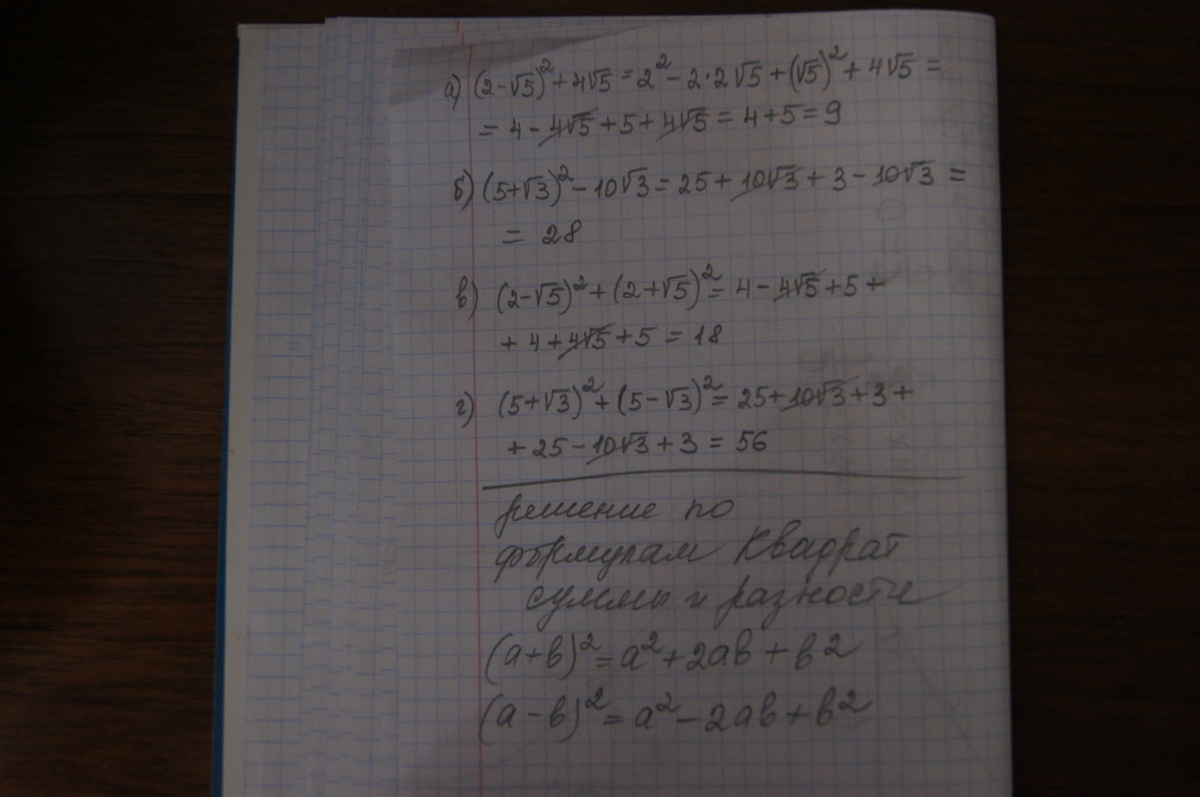 а) (2-√5)²+4√5=2²-2·2√5+(√5)²+4√5=
=4-4√5+5+4√5=4+5=9
б) (5+√3)²-10√3=25+10√3+3-10√3=
= 28
в) (2-√5)²+(2+√5)²=4-4√5+5+
+4+4√5+5=18
г) (5+√3)²+(5-√3)²=25+10√3+3+
+25-10√3+3=56
решение по
формулам Квадрат
суммы и разности
(а+в)²=а²+2ав+в²
(а-в)²=а²-2ав+в²